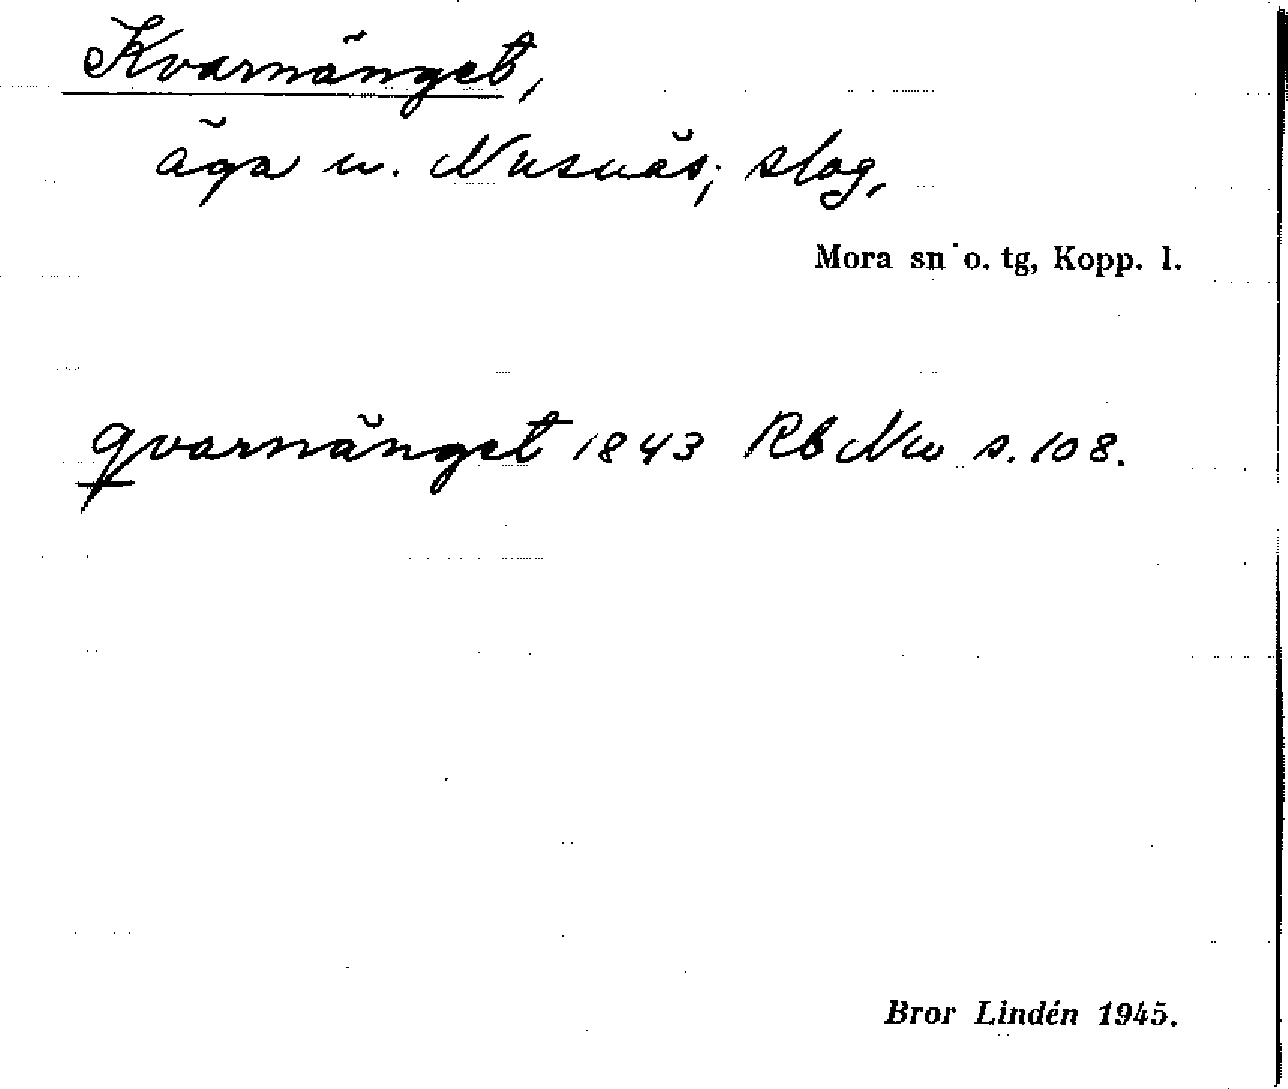 Kvarnänget,
äga u. Nusnäs; slog,
Mora sn o. tg, Kopp. l.
qvarnänget 1843 Rb Nu s. 108.
Bror Lindén 1945.